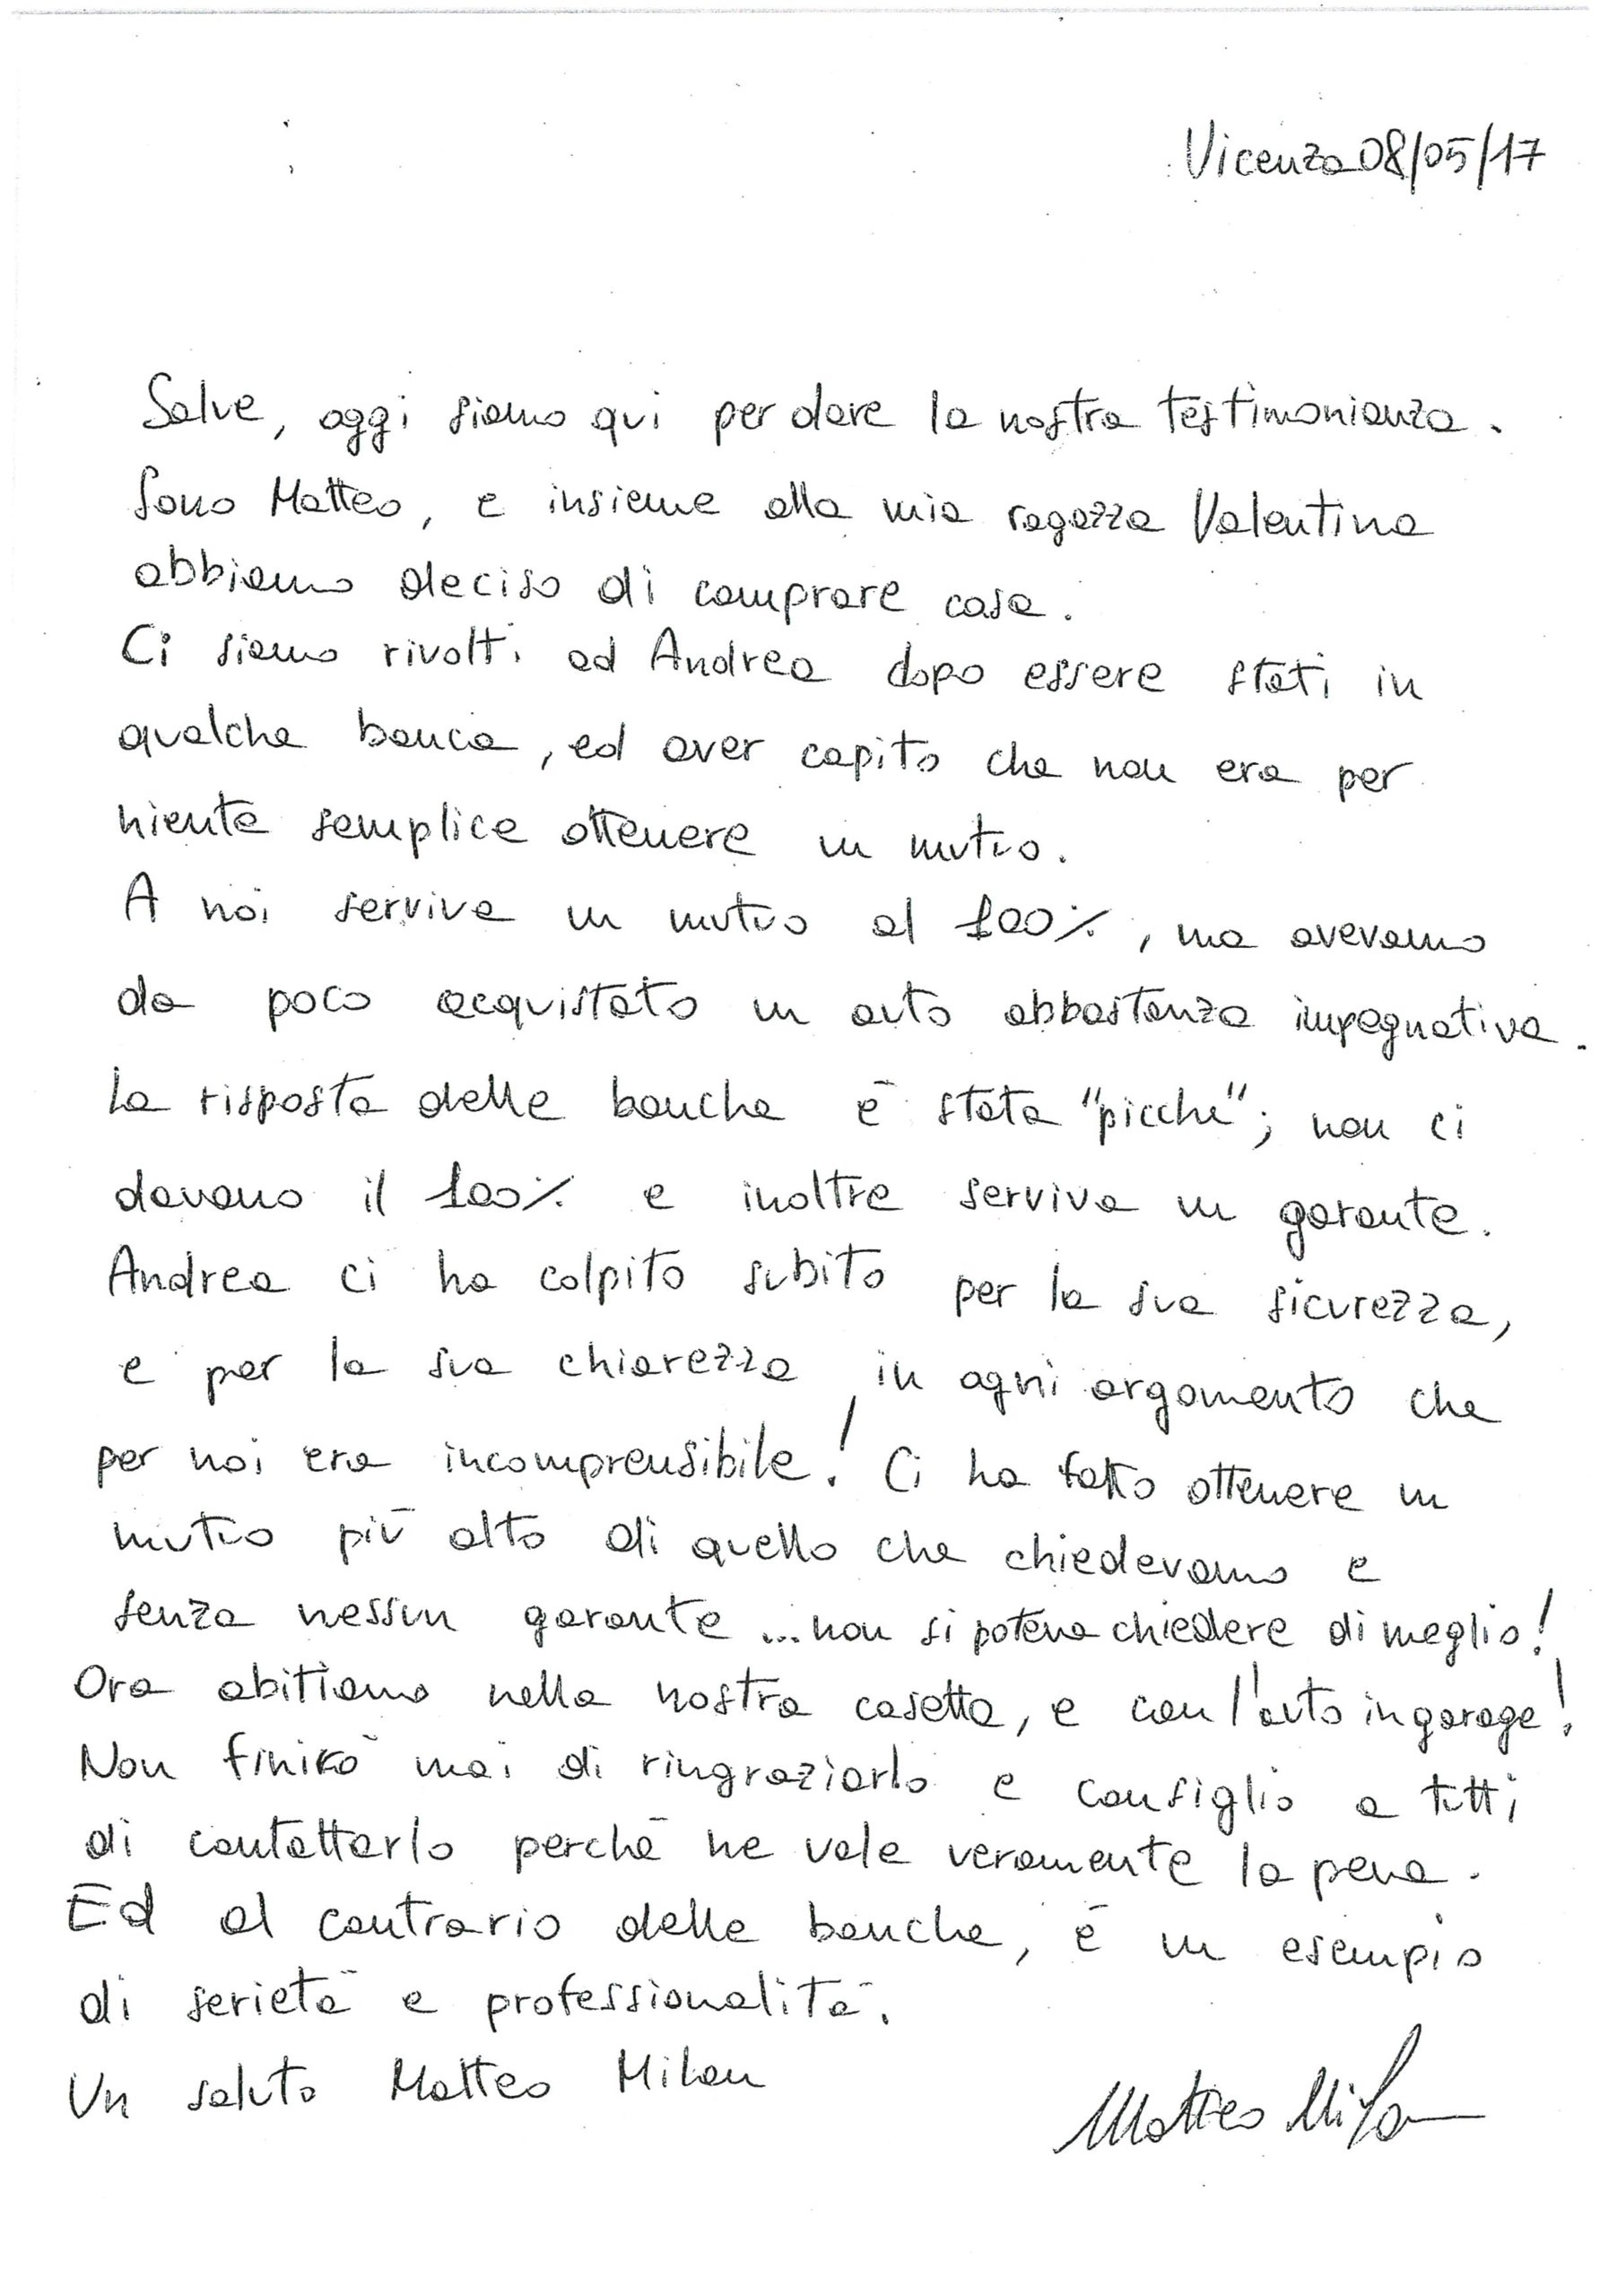 Vicenza 08/05/17
Salve, oggi siamo qui per dare la nostra testimonianza.
Sono Matteo, e insieme alla mia ragazza Valentina
abbiamo deciso di comprare casa.
Ci siamo rivolti ad Andrea dopo essere stati in
qualche banca, ed aver capito che non era per
niente semplice ottenere un mutuo.
A noi serviva un mutuo al 100%, ma avevamo
da poco acquistato un auto abbastanza impegnativa.
La risposta delle banche è stata "picche"; non ci
davano il 100% e inoltre serviva un garante.
Andrea ci ha colpito subito per la sua sicurezza,
e per la sua chiarezza in ogni argomento che
per noi era incomprensibile! Ci ha fatto ottenere un
mutuo più alto di quello che chiedevamo e
senza nessun garante ... non si poteva chiedere di meglio!
Ora abitiamo nella nostra casetta, e con l'auto in garage!
Non finirò mai di ringraziarlo e consiglio a tutti
di contattarlo perchè ne vale veramente la pena.
Ed al contrario delle banche, è un esempio
di serietà e professionalità.
Un saluto Matteo Milan
Matteo Milan